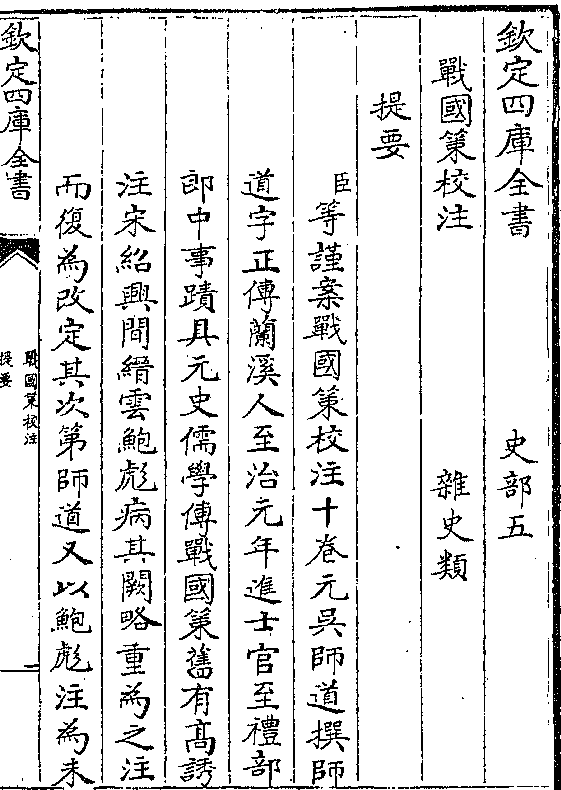 欽定四庫全書　史部五
戰國策校注　雜史類
提要
臣等謹案戰國策校注十卷元吳師道撰師
道字正傳蘭溪人至治元年進士官至禮部
郎中事蹟具元史儒學傳戰國策舊有高誘
注宋紹興間縉雲鮑彪病其闕略重為之注
而復為改定其次第師道又以鮑彪注為未
欽定四庫全書
戰國策校注
提要
一